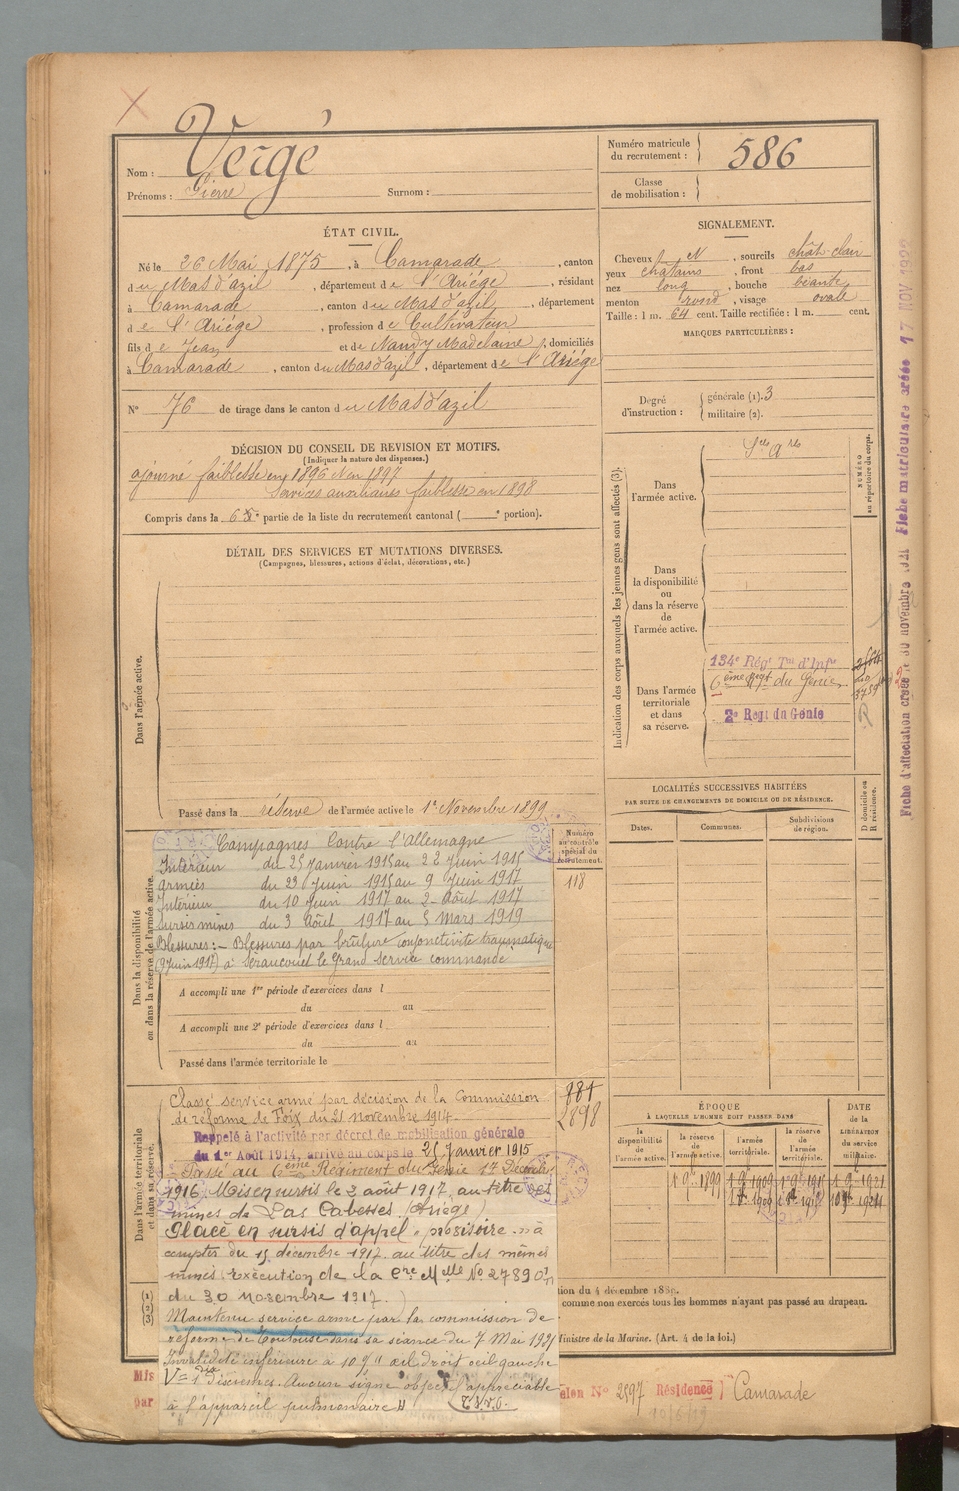 Nom : Vergé
Prénoms : Pierre Surnom :
Numéro matricule
du recrutement : 586
Classe
de mobilisation :
ÉTAT CIVIL.
Né le 26 Mai 1875, à Camarade, canton
du Mas d'azil, département de l'Ariége, résidant
à Camarade, canton du Mas d'azil, département
de l'Ariége, profession de Cultivateur
fils de Jean et de Naudy Madelaine, domiciliés
à Camarade, canton du Mas d'azil, département de l'Ariége
N° 76 de tirage dans le canton du Mas d'azil
SIGNALEMENT.
Cheveux N, sourcils chât clair
yeux chatains, front bas
nez long, bouche béante
menton rond, visage ovale
Taille : 1 m. 64 cent. Taille rectifiée : 1 m. cent.
MARQUES PARTICULIÈRES :
Degré
d'instruction :
générale (1). 3
militaire (2).
DÉCISION DU CONSEIL DE REVISION ET MOTIFS.
(Indiquer la nature des dispenses.)
ajourné faiblesse en 1896 N en 1897
Services auxiliaires faiblesse en 1898
Compris dans la 6e partie de la liste du recrutement cantonal ( e portion).
DÉTAIL DES SERVICES ET MUTATIONS DIVERSES.
(Campagnes, blessures, actions d'éclat, décorations, etc.)
Dans l'armée active.
Passé dans la réserve de l'armée active le 1er Novembre 1899
Indication des corps auxquels les jeunes gens sont affectés (3).
NUMÉRO
au répertoire du corps.
Dans
l'armée active.
Dans
la disponibilité
ou
dans la réserve
de
l'armée active.
Dans l'armée
territoriale
et dans
sa réserve.
134e Régt Tal d'Infie
6ème Régt du Génie
2e Régt du Génie
Fiche matriculaire créée 17 NOV 1922
LOCALITÉS SUCCESSIVES HABITÉES
PAR SUITE DE CHANGEMENTS DE DOMICILE OU DE RÉSIDENCE.
D domicile ou
R résidence.
Dates. Communes. Subdivisions
de région.
Dans la disponibilité
ou dans la réserve de l'armée active.
Numéro
au contrôle
spécial du
recrutement.
118
Campagnes Contre l'Allemagne
Intérieur du 25 Janvier 1915 au 22 Juin 1915
armées du 23 Juin 1915 au 9 Juin 1917
Intérieur du 10 Juin 1917 au 2 Août 1917
Sursis mines du 3 Août 1917 au 5 Mars 1919
Blessures : - Blessures par brûlure conjonctivite traumatique
(9 Juin 1917) à Seraucourt le Grand Service commandé
A accompli une 1re période d'exercices dans l
du au
A accompli une 2e période d'exercices dans l
du au
Passé dans l'armée territoriale le
Dans l'armée territoriale
et dans sa réserve.
2898
Classé service armé par décision de la Commission
de réforme de Foix du 21 novembre 1914.
Rappelé à l'activité par décret de mobilisation générale
du 1er Août 1914, arrivé au corps le 25 Janvier 1915
Passé au 6ème Régiment du Génie 17 Décembre
1916. Mis en sursis le 3 août 1917, au titre des
mines de Las Cabesses (Ariége)
Placé en sursis d'appel provisoire à
compter du 15 décembre 1917 au titre des mêmes
mines. Exécution de la Cre Mlle No 27890
du 30 novembre 1917.
Maintenu service armé par la commission de
réforme de Toulouse dans sa séance du 7 Mai 1921
Invalidité inférieure à 10 % œil droit œil gauche
V = dixièmes. Aucun signe object appréciable
à l'appareil pulmonaire
ÉPOQUE
À LAQUELLE L'HOMME DOIT PASSER DANS
la
disponibilité
de
l'armée active.
la réserve
de
l'armée active.
l'armée
territoriale.
la réserve
de
l'armée
territoriale.
DATE
de la
LIBÉRATION
du service
militaire.
(1)
(2)
(3)
comme non exercés tous les hommes n'ayant pas passé au drapeau.
Ministre de la Marine. (Art. 4 de la loi.)
Mis
par
N° 2597 Résidence Camarade
10/6/19